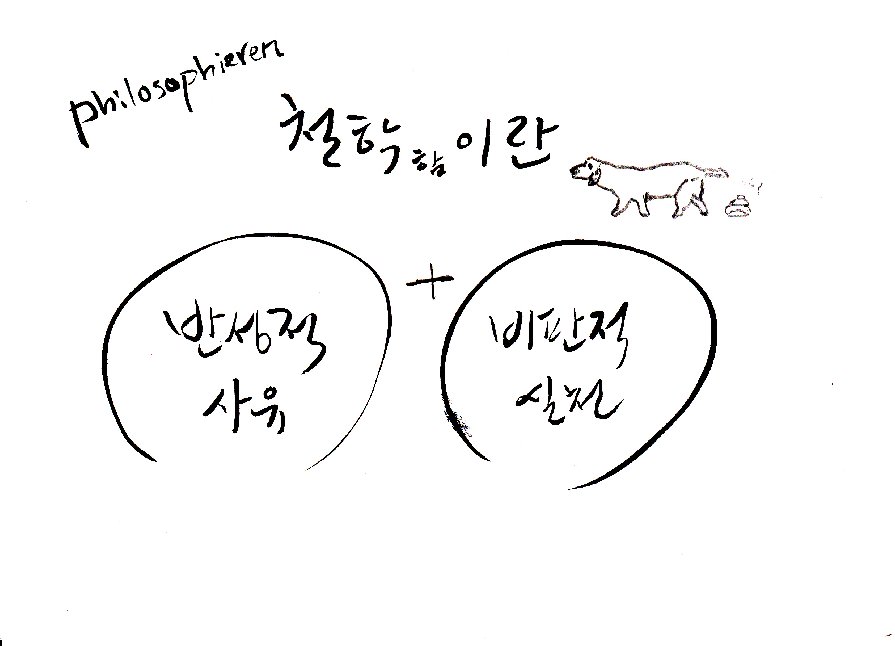 philosophieren
철학함이란
반성적
사유
+
비판적
실천